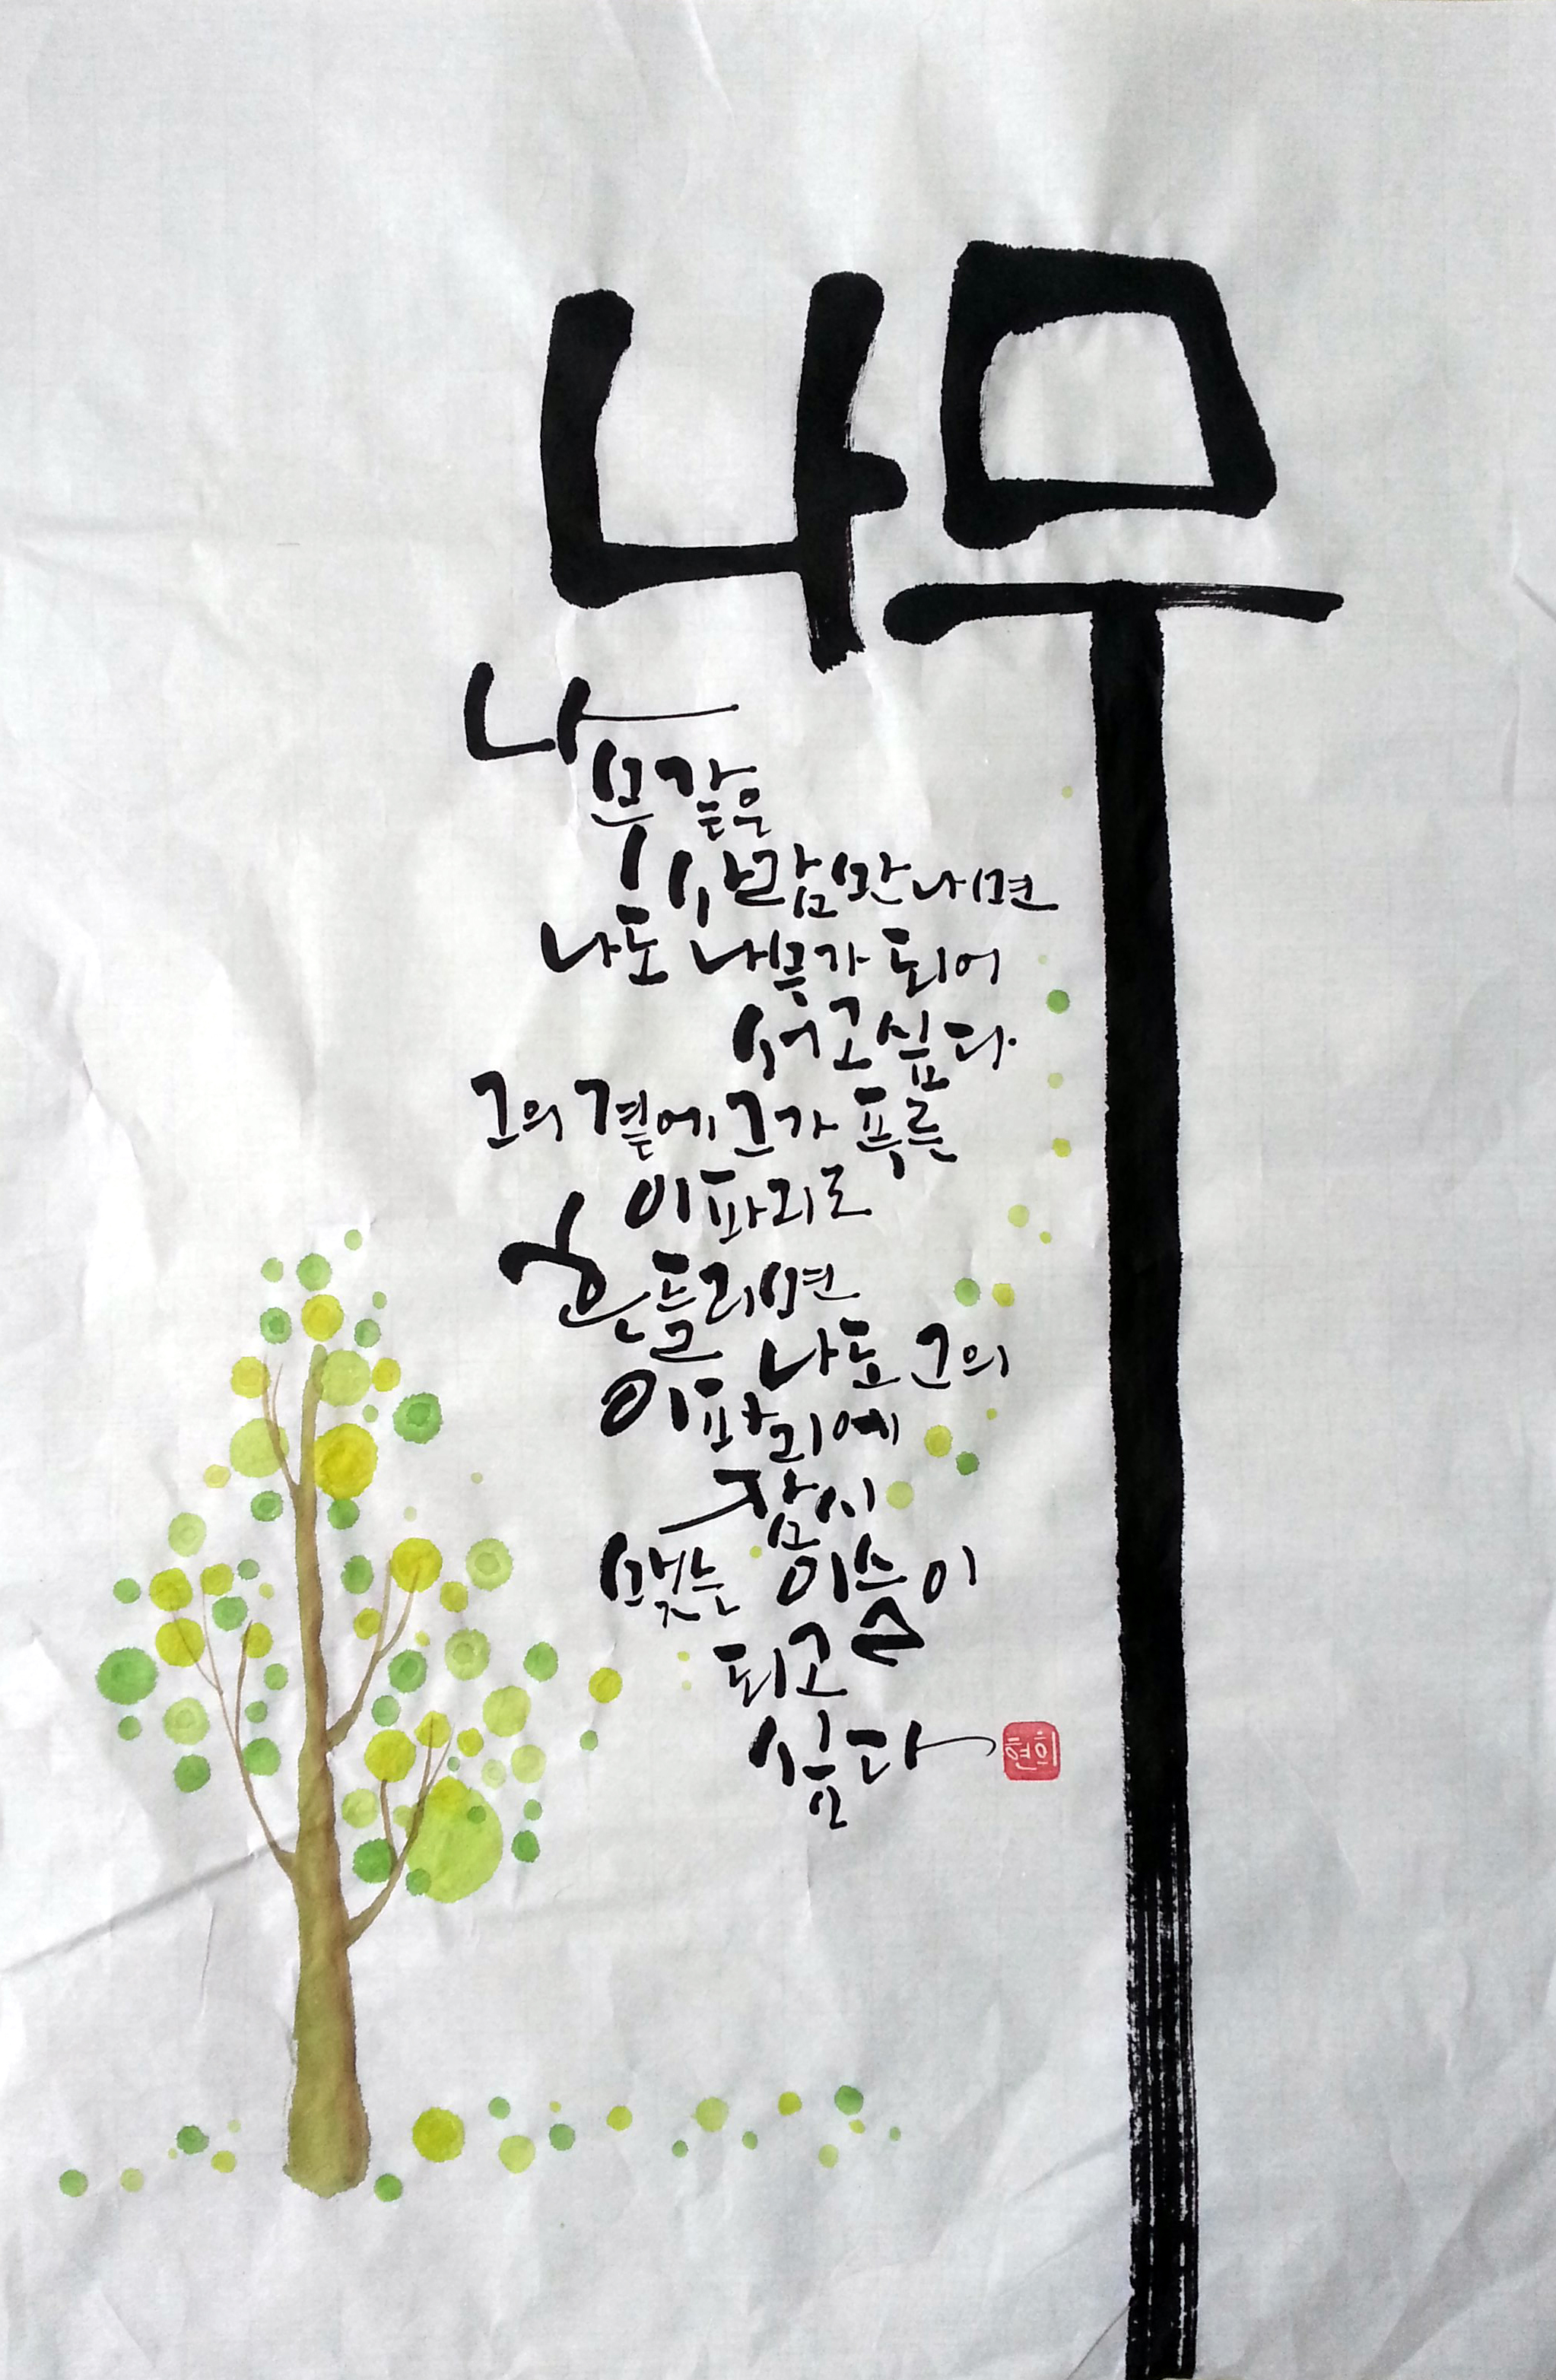 나무
나무같은
사람만나면
나도 나무가 되어
서고싶다
그의 곁에 그가 푸른
이파리로
흔들리면
나도 그의
이파리에
잠시
맺는 이슬이
되고
싶다
현희